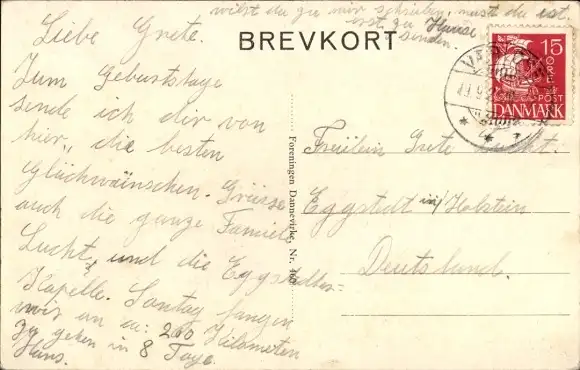 wilst du zu mir schreiben, must du ist.
ist zu Hause
senden.
BREVKORT
Liebe Grete.
Zum Geburtstage
sende ich dir von
hier, die besten
Glückwünschen. Grüsse
auch die ganze Familie
Lucht, und die Eggstedter=
Kapelle. Sontag fangen
wir an ca: 200 Kilometen
Zu gehen in 8 Tage.
Hans.
Foreningen Dannevirke, Nr.
15
ØRE
POST
DANMARK
Fräulein Grete Lucht.
Eggstedt in/Holstein
Deutsland.